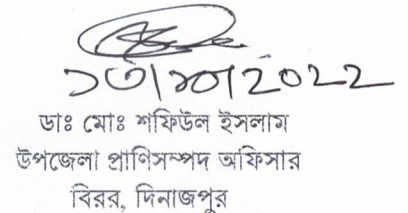 ১৩/১০/2022
ডাঃ মোঃ শফিউল ইসলাম
উপজেলা প্রাণিসম্পদ অফিসার
বিরর, দিনাজপুর